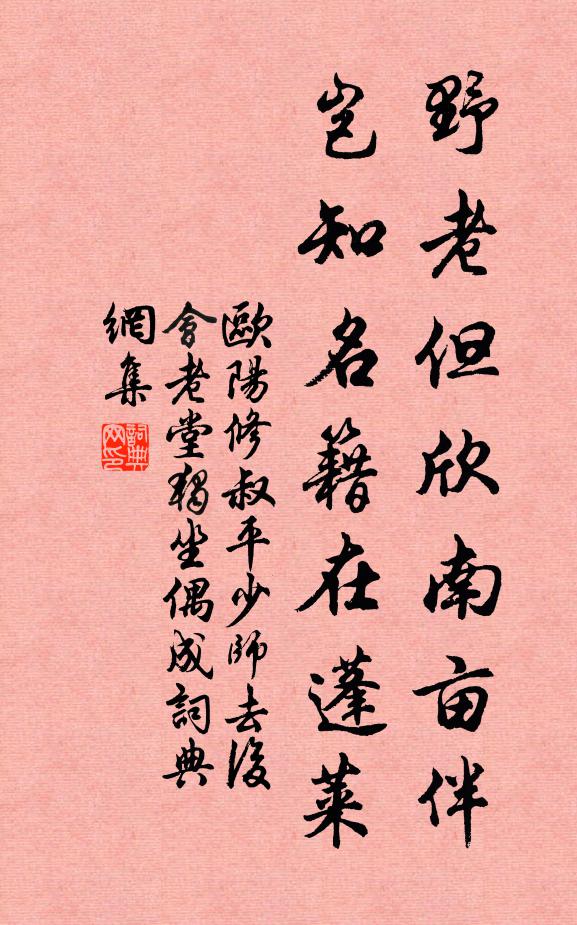 野老但欣南亩伴
岂知名籍在蓬萊
歐陽修叔平少師去後
會老堂獨坐偶成詞典
網集
詞典網印